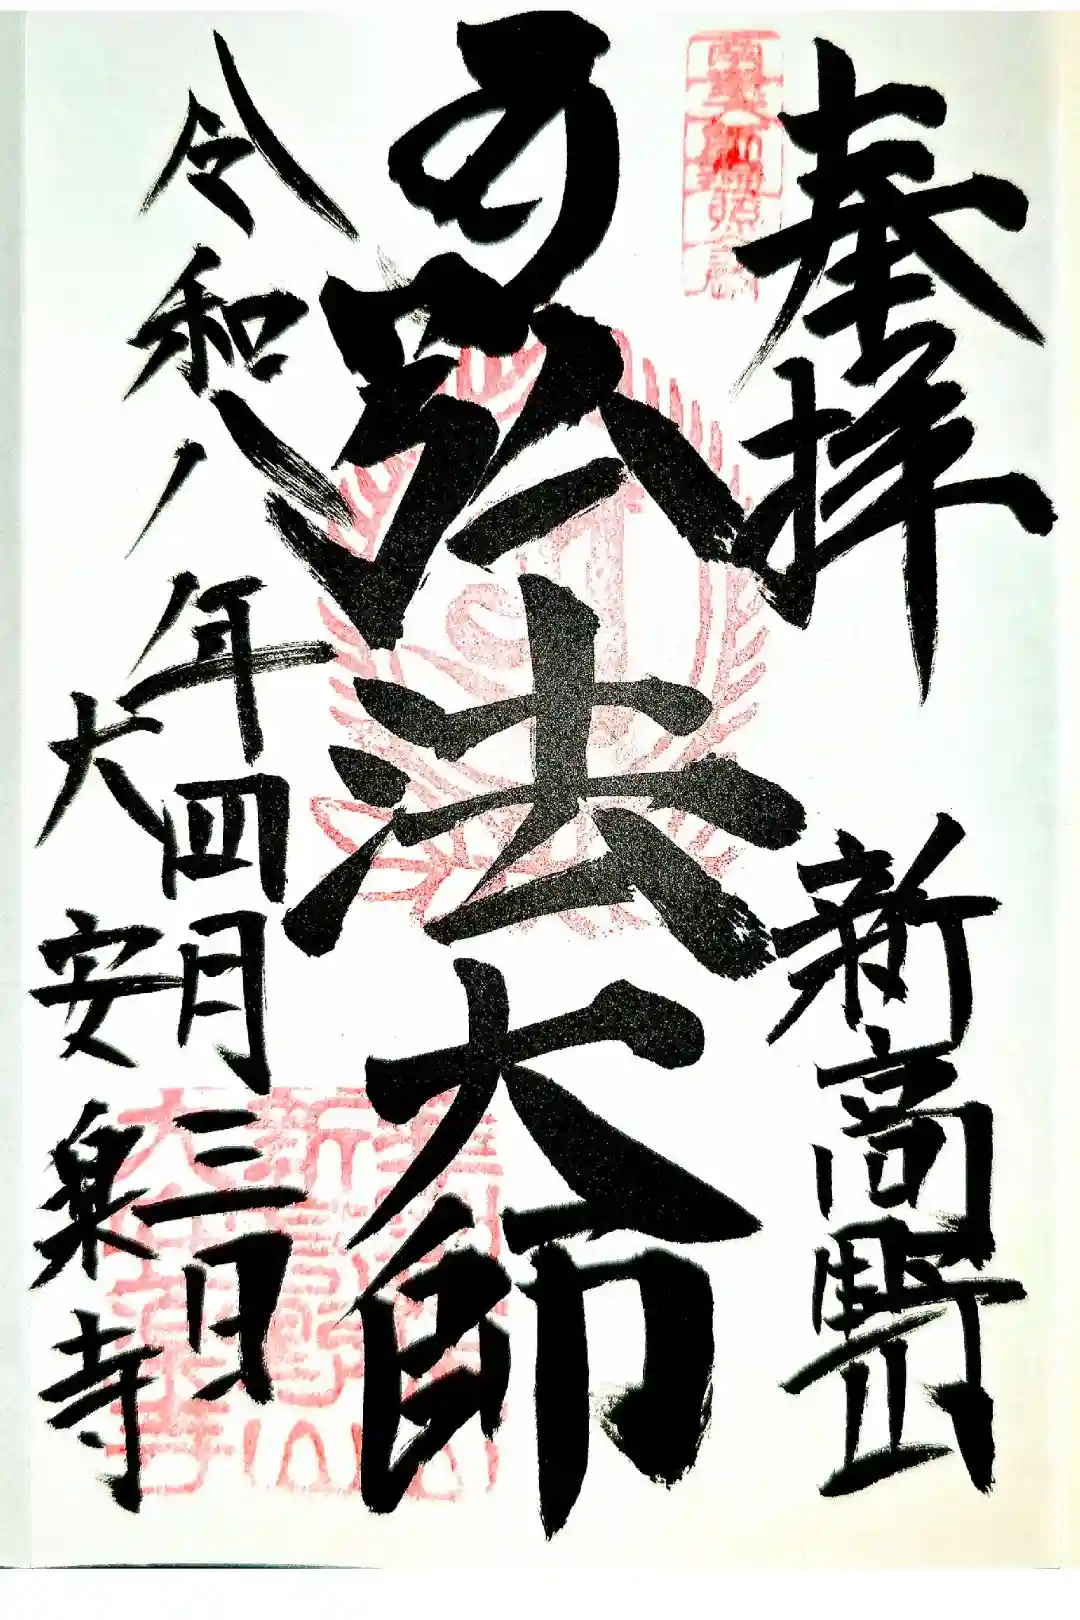 奉拝
新高野山
弘法大師
令和八年四月三日
大安泉寺